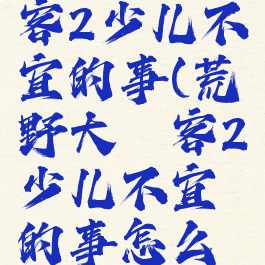 客2少儿不
宜的事(荒
野大 客2
少儿不宜
的事怎么